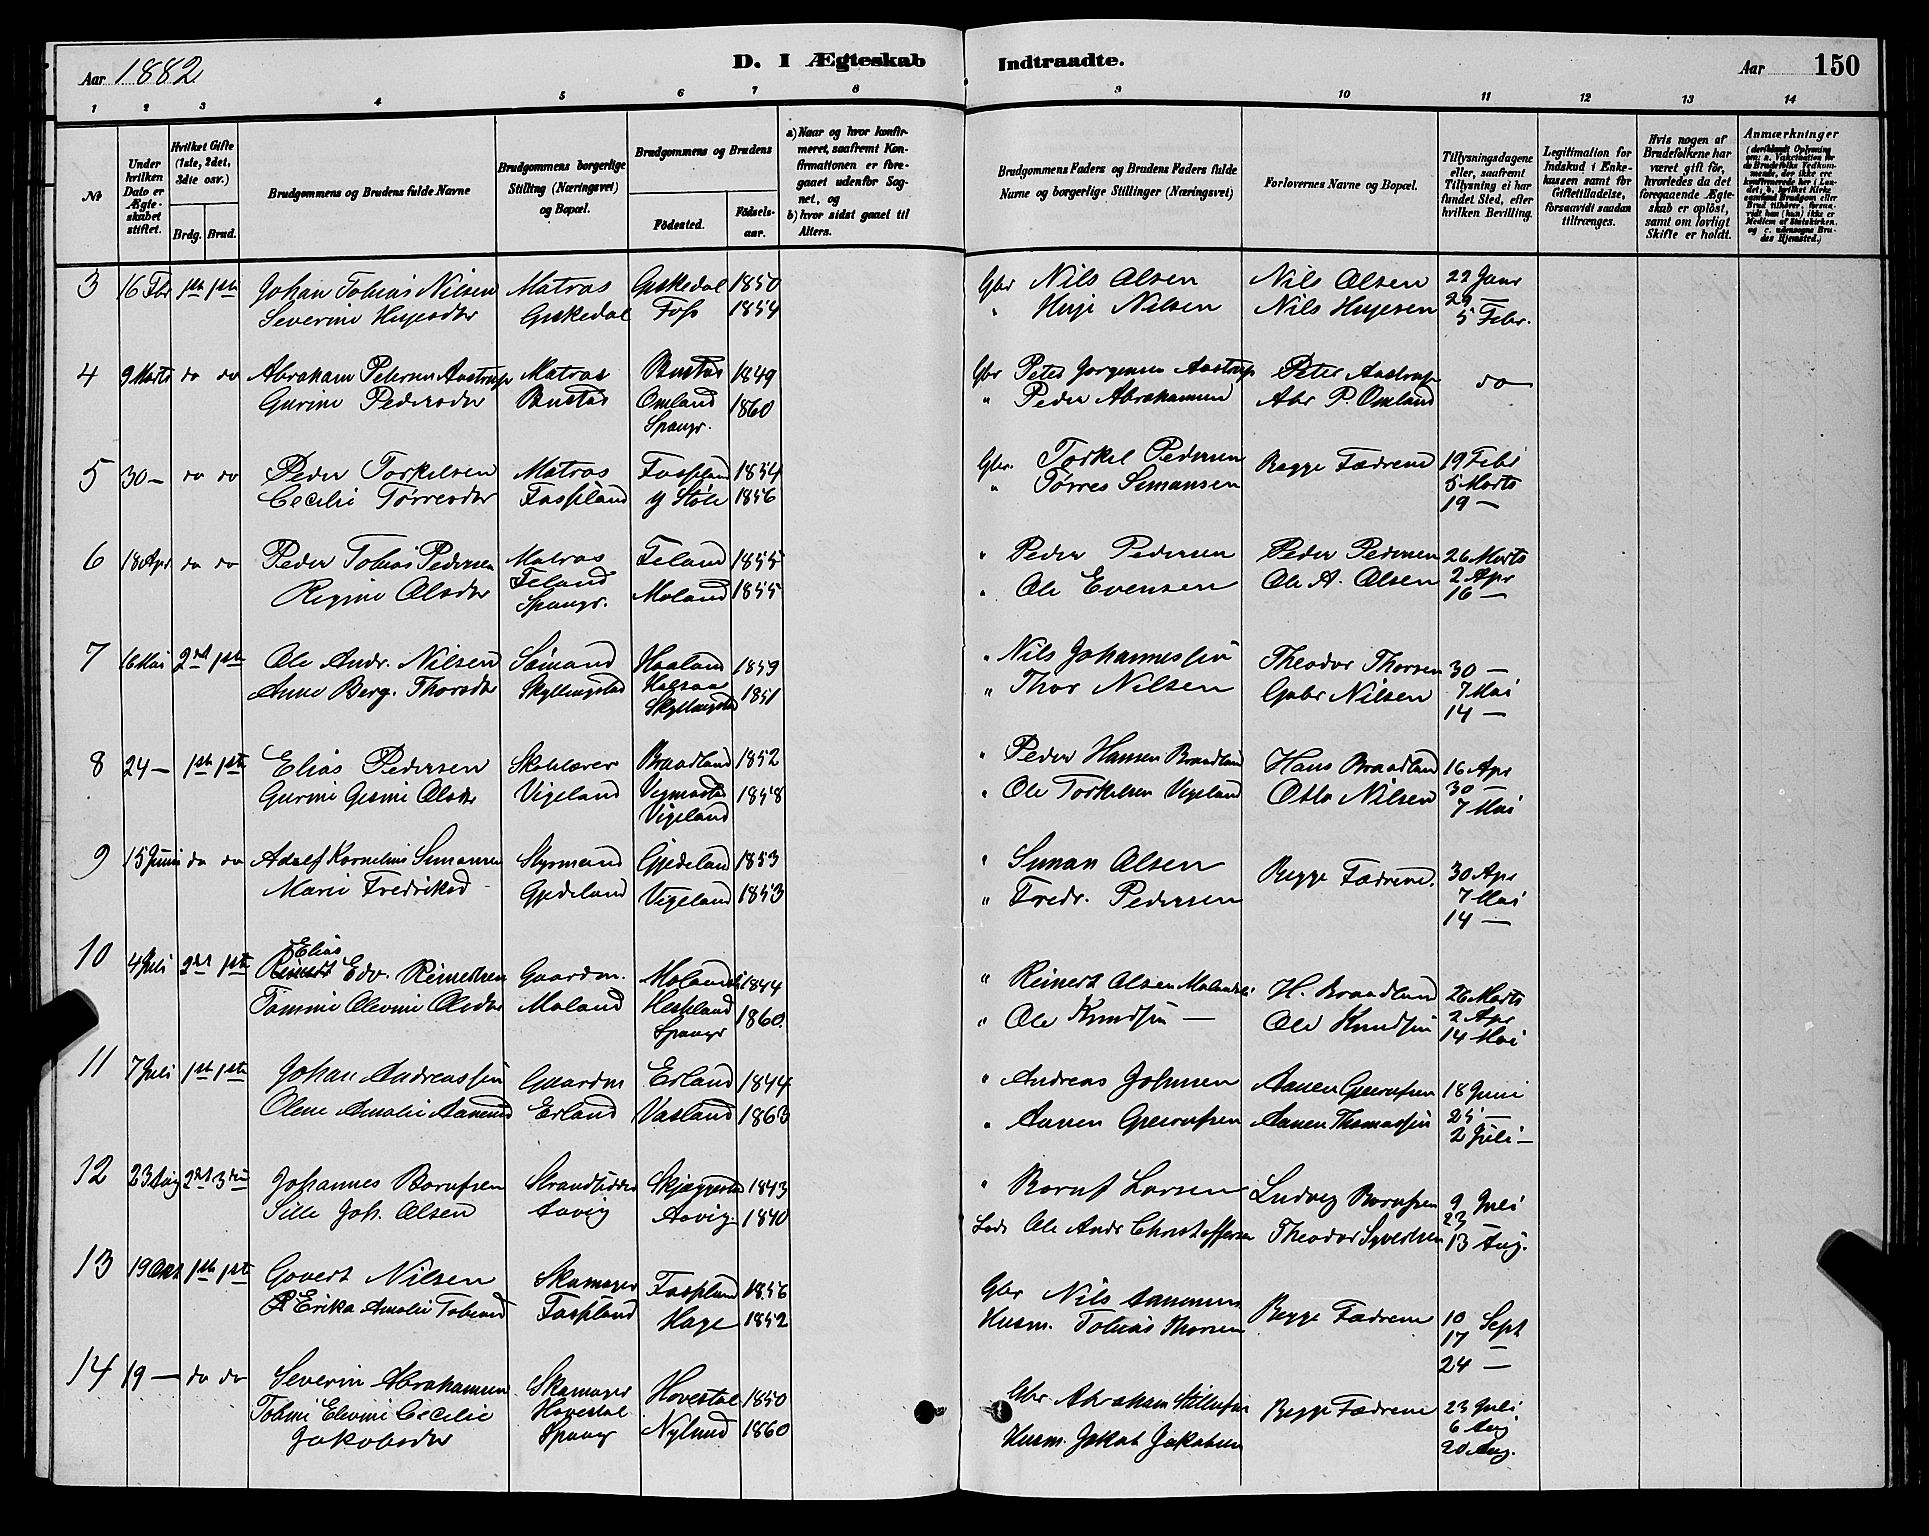 Aar 1882
D. I Ægteskab Indtraadte.
Aar 150
1 2 3 4 5 6 7 8 9 10 11 12 13 14
No
Under hvilken Dato er Ægteskabet stiftet.
Hvilket Gifte (1ste, 2det, 3die osv.)
Brdg. Brud.
Brudgommens og Brudens fulde Navne
Brudgommens borgerlige Stilling (Næringsvei) og Bopæl.
Brudgommens og Brudens
Fødested.
Fødselsaar.
a) Naar og hvor konfirmeret, saafremt Konfirmationen er foregaaet udenfor Sognet, og
b) hvor sidst gaaet til Alters.
Brudgommens Faders og Brudens Faders fulde Navne og borgerlige Stillinger (Næringsvei)
Forlovernes Navne og Bopæl.
Tillysningsdagene eller, saafremt Tillysning ei har fundet Sted, efter hvilken Bevilling.
Legitimation for Indskud i Enkekassen samt for Giftetilladelse, forsaavidt saadan tiltrænges.
Hvis nogen af Brudefolkene har været gift før, hvorledes da det foregaaende Ægteskab er opløst, samt om lovligt Skifte er holdt.
Anmærkninger
3 16 Fbr 1ste 1ste Johan Tobias Nilsen Matros Gyskedal 1850 Gbr Nils Olsen Nils Olsen 22 Janr
Severine Huyesdtr Gyskedal Foss 1854 " Huje Nilsen Nils Hujesen 29 —
5 Febr.
4 9 Marts do do Abraham Petersen Aastrup Matros Bustad 1849 Gbr Peter Jørgensen Aastrup Peter Aastrup do
Gurine Pedersdtr Bustad Omland 1860 " Peder Abrahamsen Abr P. Omland
Spangr.
5 30 — do do Peder Torkelsen Matros Faspland 1854 Gbr. Torkel Pedersen Begge Fædrene 19 Febr
Cecilie Tørresdtr Faspland y Støle 1856 " Tørres Simonsen 5 Marts
19 —
6 18 Apr do do Peder Tobias Pedersen Matros Feland 1855 " Peder Pedersen Peder Pedersen 26 Marts
Regine Olsdtr Feland Moland 1855 " Ole Evensen Ole A. Olsen 2 Apr
Spangr. 16 —
7 16 Mai 2det 1ste Ole Andr. Nilsen Sømand Haaland 1859 " Nils Johannessen Theodor Thorsen 30 —
Anne Berg. Thorsdtr Skyllingstad Halsaa 1851 " Thor Nilsen Gabr Nilsen 7 Mai
Skyllingstad 14 —
8 24 — 1ste 1ste Elias Pedersen Skolelærer Braadland 1852 " Peder Hansen Braadland Hans Braadland 16 Apr
Gurine Gesine Olsdtr Vigeland Vigmostad 1858 " Ole Torkelsen Vigeland Otto Nilsen 30 —
Vigeland 7 Mai
9 15 Juni do do Adolf Kornelius Simonsen Styrmand Gjedeland 1853 " Simon Olsen Begge Fædrene. 30 Apr
Marie Fredriksd Gjedeland Vigeland 1853 " Fredr. Pedersen 7 Mai
14 —
10 4 Juli 2det 1ste Elias Edv. Reinertsen Gaardm. 1844 " Reinert Olsen H. Braadland 26 Marts
Tomine Olevine Olsdtr Moland Heskland 1860. " Ole Knudsen — Ole Knudsen 2 Apr
Spangr 14 Mai
11 7 Juli 1ste 1ste Johan Andreassen Gaardm Erland 1844 " Andreas Johnsen Aanen Gjerulfsen 18 Juni
Olene Amalie Aanensd Erland Vasland 1863 " Aanen Gjerulfsen Aanen Thomassen 25 —
2 Juli —
12 23 Aug 2det 3die Johannes Borufsen Strandsidder Skjeggestad 1843 " Boruf Larsen Ludvig Borufsen 9 Juli
Sille Joh. Olsen Aavig Aavig 1840 Lods Ole Andr Christoffersen Theodor Syvertsen 23
13 Aug.
13 19 Okt 1ste 1ste Govert Nilsen Skomager Faspland 1856 Gbr Nils Aanensen Begge Fædrene 10 Sept
Erika Amalie Tobiasd Faspland Hage 1852 Husm. Tobias Thorsen 17 —
24 —
14 19 — do do Severin Abrahamsen Skomager Hovestol 1850 Gbr Abraham Begge Fædrene 23 Juli
Tobine Elevine Cecilie Hovestol Nylund 1860 Husm. Jakob Jakobsen 6 Aug
Jakobsdtr Spangr 20 Aug.